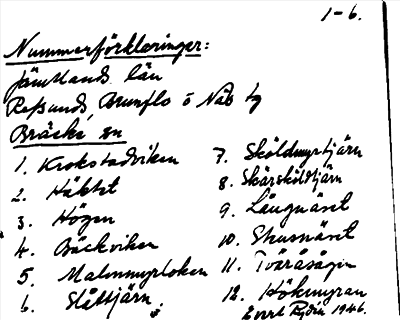 1-6.
Nummerförklaringer:
Jämtlands län
Refsunds, Brunflo o Näs tg
Bräcke, sn
1. Krokstadviken
2. Häktet
3. Högen
4. Bäckviken
5. Malmmyrloken
6. Slåttjärn
7. Sköldmyrtjärn
8. Skärsköldtjärn
9. Långnäset
10. Skusnäset
11. Tväråsågen
12. Hökmyran
1946.